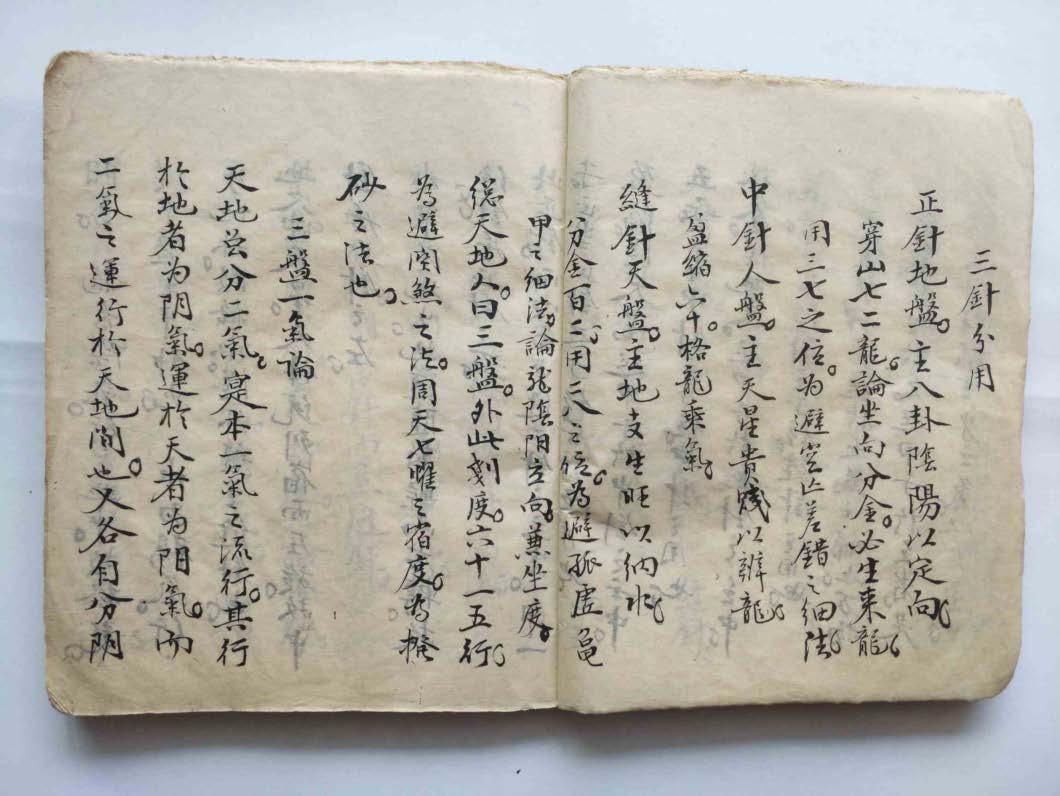 三針分用
正針地盤。主八卦陰陽以定向。
穿山七二龍。論坐向分金。必生来龍。
用三七之位。为避空亡差錯之细法。
中針人盤。主天星貴賎以辨龍。
盈縮六十格龍乘氣。
縫針天盤。主地支生旺以納水。
分金百二。用二八之位。為避孤虚龟
甲之细法。論龍陰阳立向。兼坐度。
縂天地人。曰三盤。外此刻度。六十一五行。
為避関煞之法。周天七曜之宿度。為撥
砂之法也。
三盤一氣論
天地总分二氣。寔本一氣之流行。其行
於地者为阴氣。運於天者为阳氣。而
二氣之運行於天地间也。又各自分阴